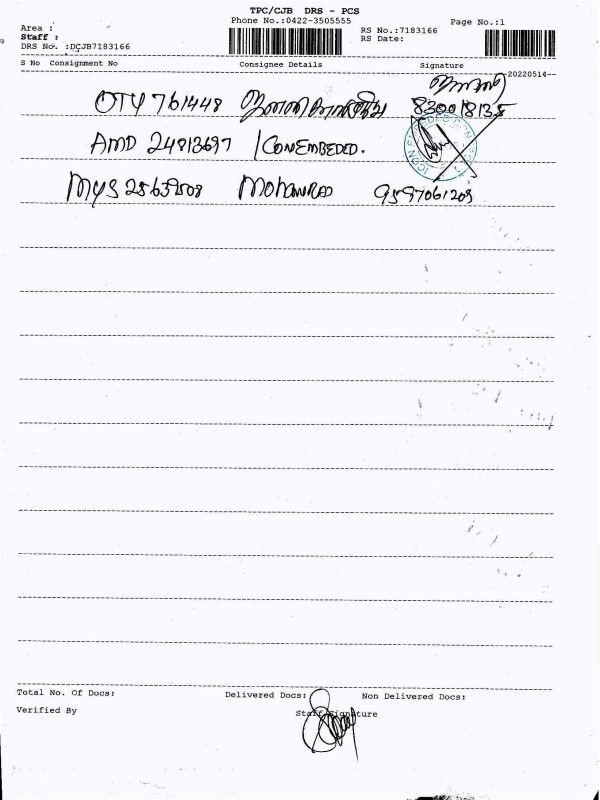 TPC/CJB DRS - PCS
Phone No.:0422-3505555
Page No.:1
Area :
Staff :
DRS No. :DCJB7183166
RS No.:7183166
RS Date:
S No Consignment No Consignee Details Signature
--20220514--
OTY 761448 830018135
AMD 24813697 ICONEMBEDED.
MYS 25659508 9597061203
Total No. Of Docs: Delivered Docs: Non Delivered Docs:
Verified By Staff Signature